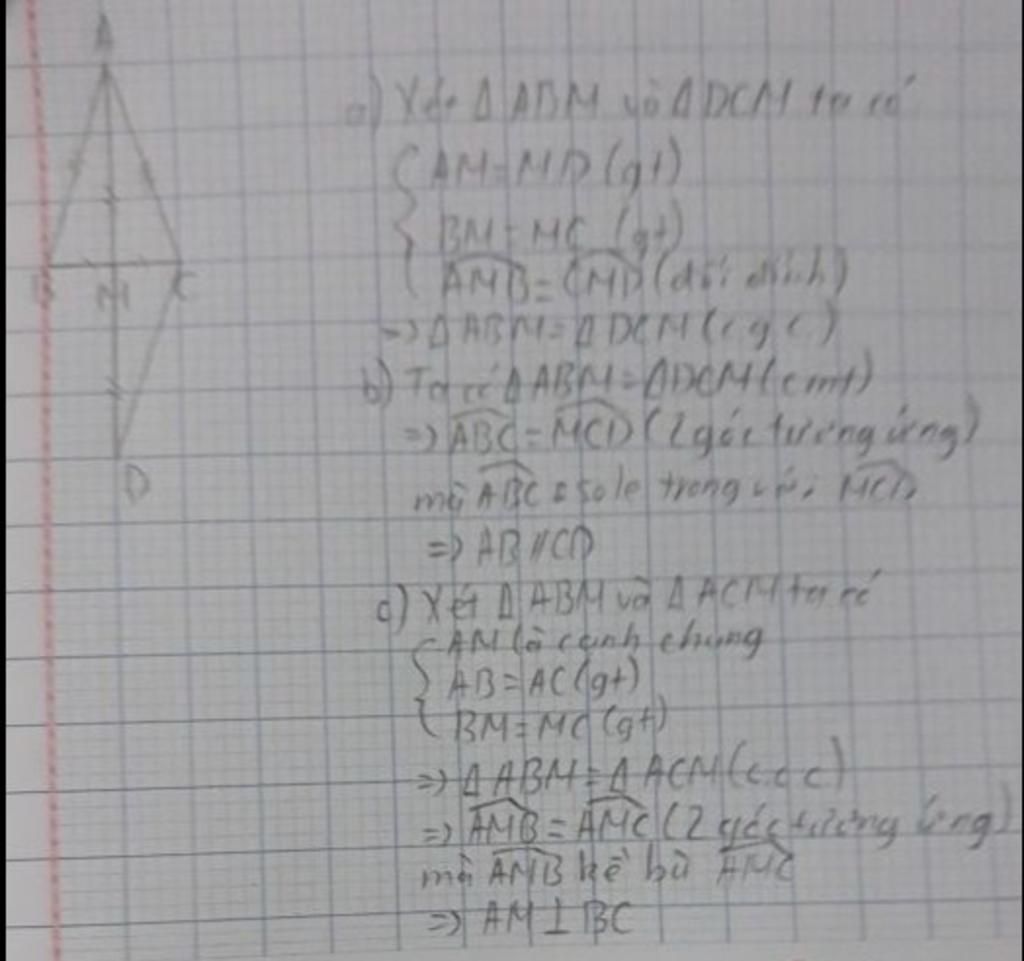 A
B
M
C
D
a) Xét Δ ABM và Δ DCM ta có
AM = MD (gt)
BM = MC (gt)
AMB = CMD (đối đỉnh)
=> Δ ABM = Δ DCM (c g c)
b) Ta có Δ ABM = Δ DCM (cmt)
=> ABC = MCD (2 góc tương ứng)
mà ABC sole trong với MCD
=> AB // CD
c) Xét Δ ABM và Δ ACM ta có
AM là cạnh chung
AB = AC (gt)
BM = MC (gt)
=> Δ ABM = Δ ACM (c c c)
=> AMB = AMC (2 góc tương ứng)
mà AMB kề bù AMC
=> AM ⊥ BC